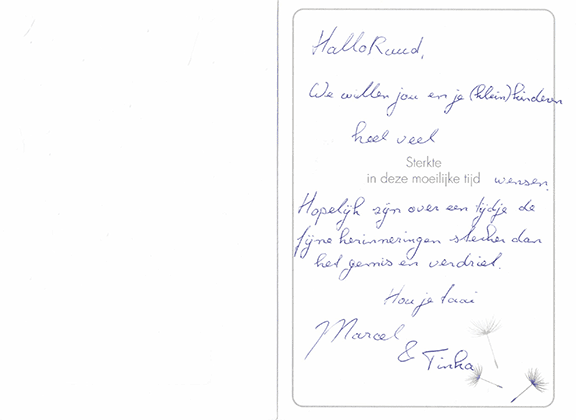 Hallo Ruud,
We willen jou en je (klein)kinderen
heel veel
Sterkte
in deze moeilijke tijd wensen.
Hopelijk zijn over een tijdje de
fijne herinneringen sterker dan
het gemis en verdriet.
Hou je taai
Marcel
& Tinka